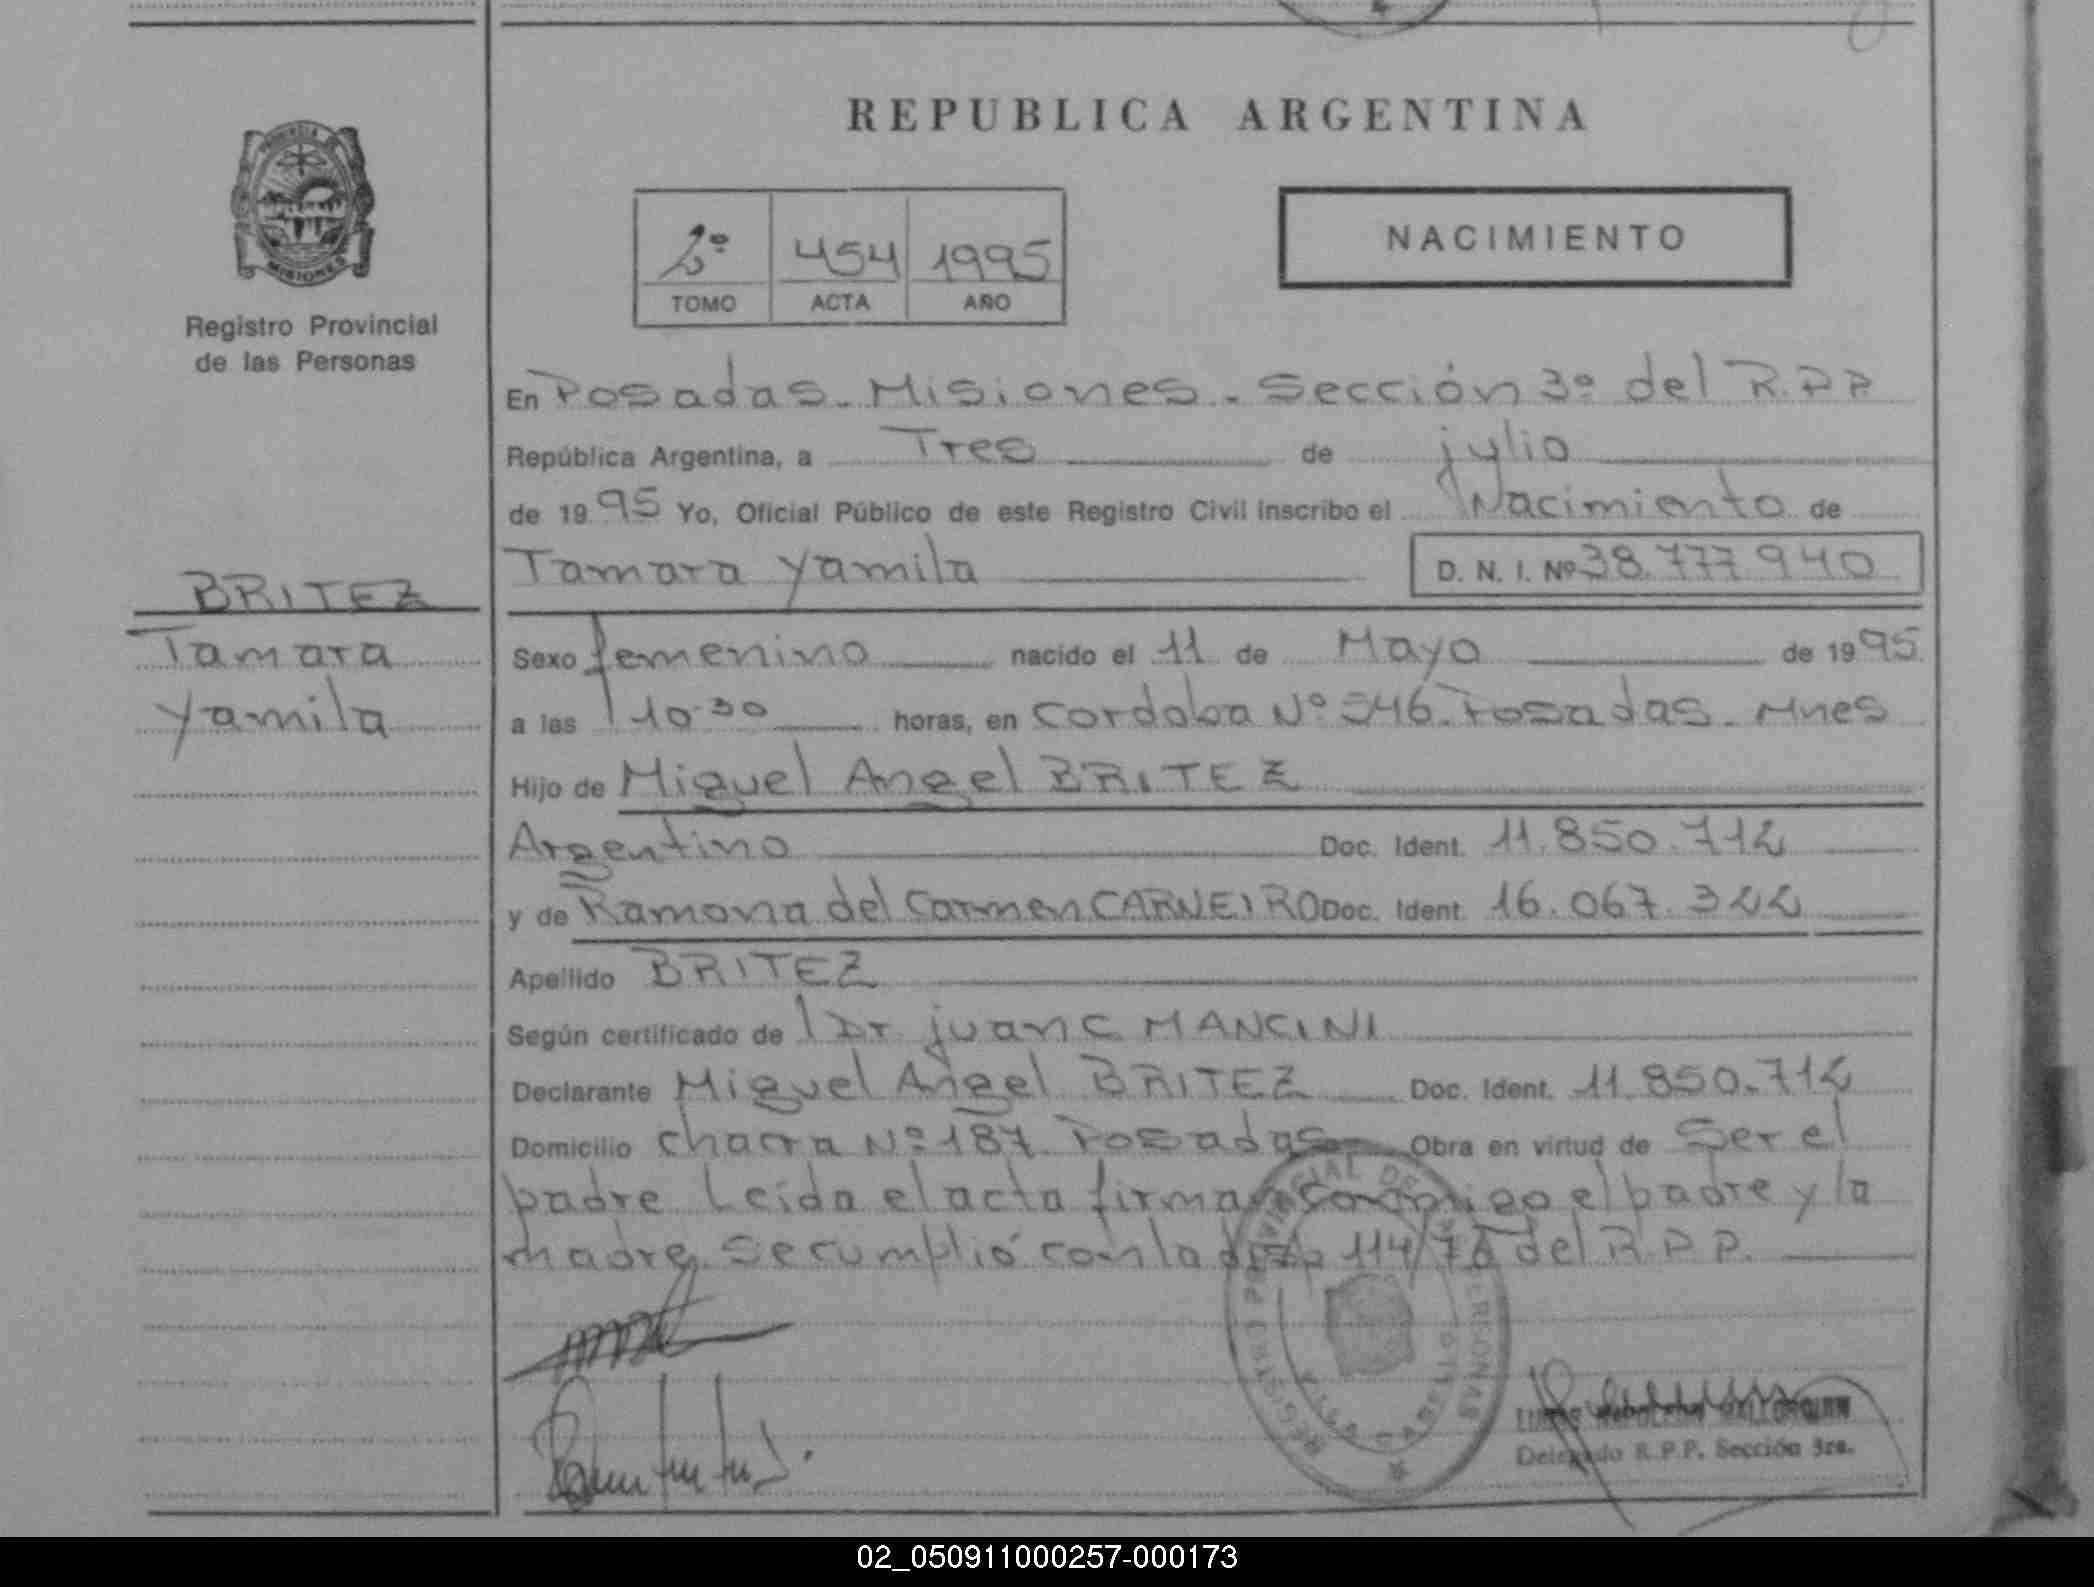 REPUBLICA ARGENTINA
PROVINCIA DE
MISIONES
Registro Provincial
de las Personas
2º 454 1995
TOMO ACTA AÑO
NACIMIENTO
En Posadas - Misiones - Sección 3º del R.P.P.
República Argentina, a Tres de julio
de 1995 Yo, Oficial Público de este Registro Civil inscribo el Nacimiento de
Tamara Yamila D. N. I. Nº 38.777.940
BRITEZ
Tamara
Yamila
Sexo femenino nacido el 11 de Mayo de 1995
a las 10.30 horas, en Cordoba Nº 546. Posadas - Mnes
Hijo de Miguel Angel BRITEZ
Argentino Doc. Ident. 11.850.712
y de Ramona del Carmen CARNEIRO Doc. Ident. 16.067.322
Apellido BRITEZ
Según certificado de Dr. Juan C MANCINI
Declarante Miguel Angel BRITEZ Doc. Ident. 11.850.712
Domicilio chacra Nº 187. Posadas Obra en virtud de Ser el
padre. Leida el acta firman conmigo el padre y la
madre. Se cumplió con la disp 114/76 del R.P.P.
REGISTRO PROVINCIAL DE LAS PERSONAS
POSADAS
Delegado R.P.P. Sección 3ra.
02_050911000257-000173